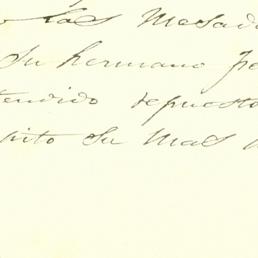 las Mesada
su hermano Je
tendido repuesto
rito su mas